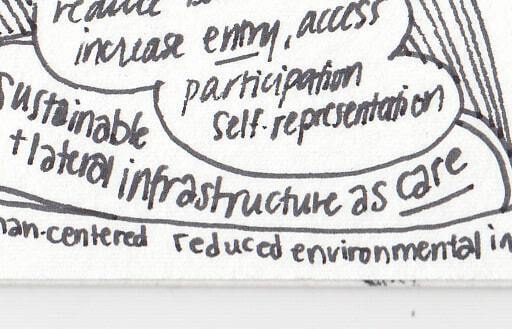 reduce
increase entry, access
participation
self-representation
Sustainable
+ lateral infrastructure as care
an-centered reduced environmental in